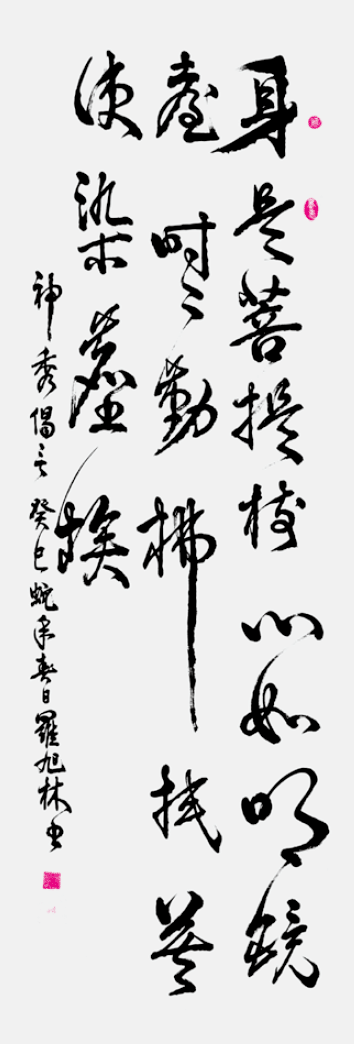 身是菩提樹心如明鏡
臺時〻勤拂拭莫
使染塵埃
神秀偈言癸巳蛇年春日羅旭林書